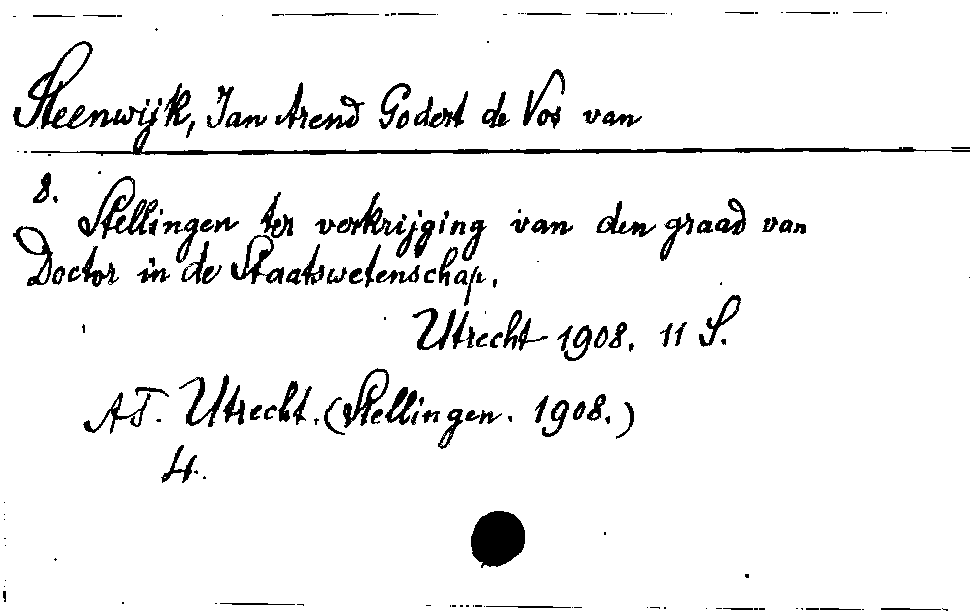 Steenwijk, Jan Arend Godert de Vos van
8.
Stellingen ter verkrijging van den graad van
Doctor in de Staatswetenschap.
Utrecht 1908. 11 S.
AT. Utrecht. (Stellingen. 1908.)
4.